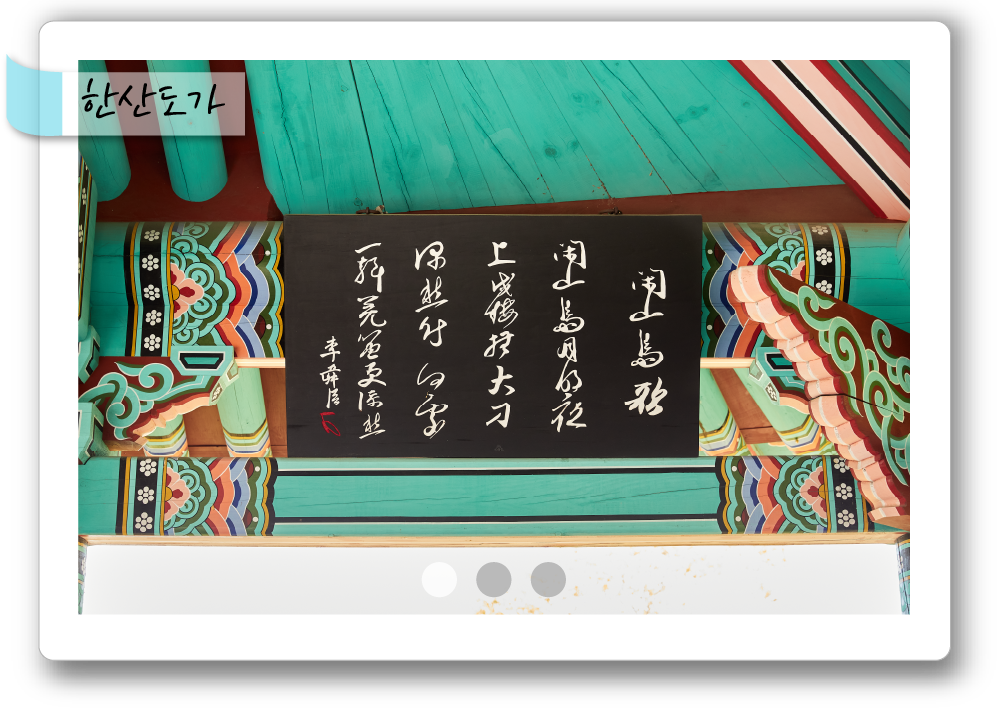 한산도가
閑山島歌
閑山島月明夜
上戍樓撫大刀
深愁時何處
一聲羌笛更添愁
李舜臣